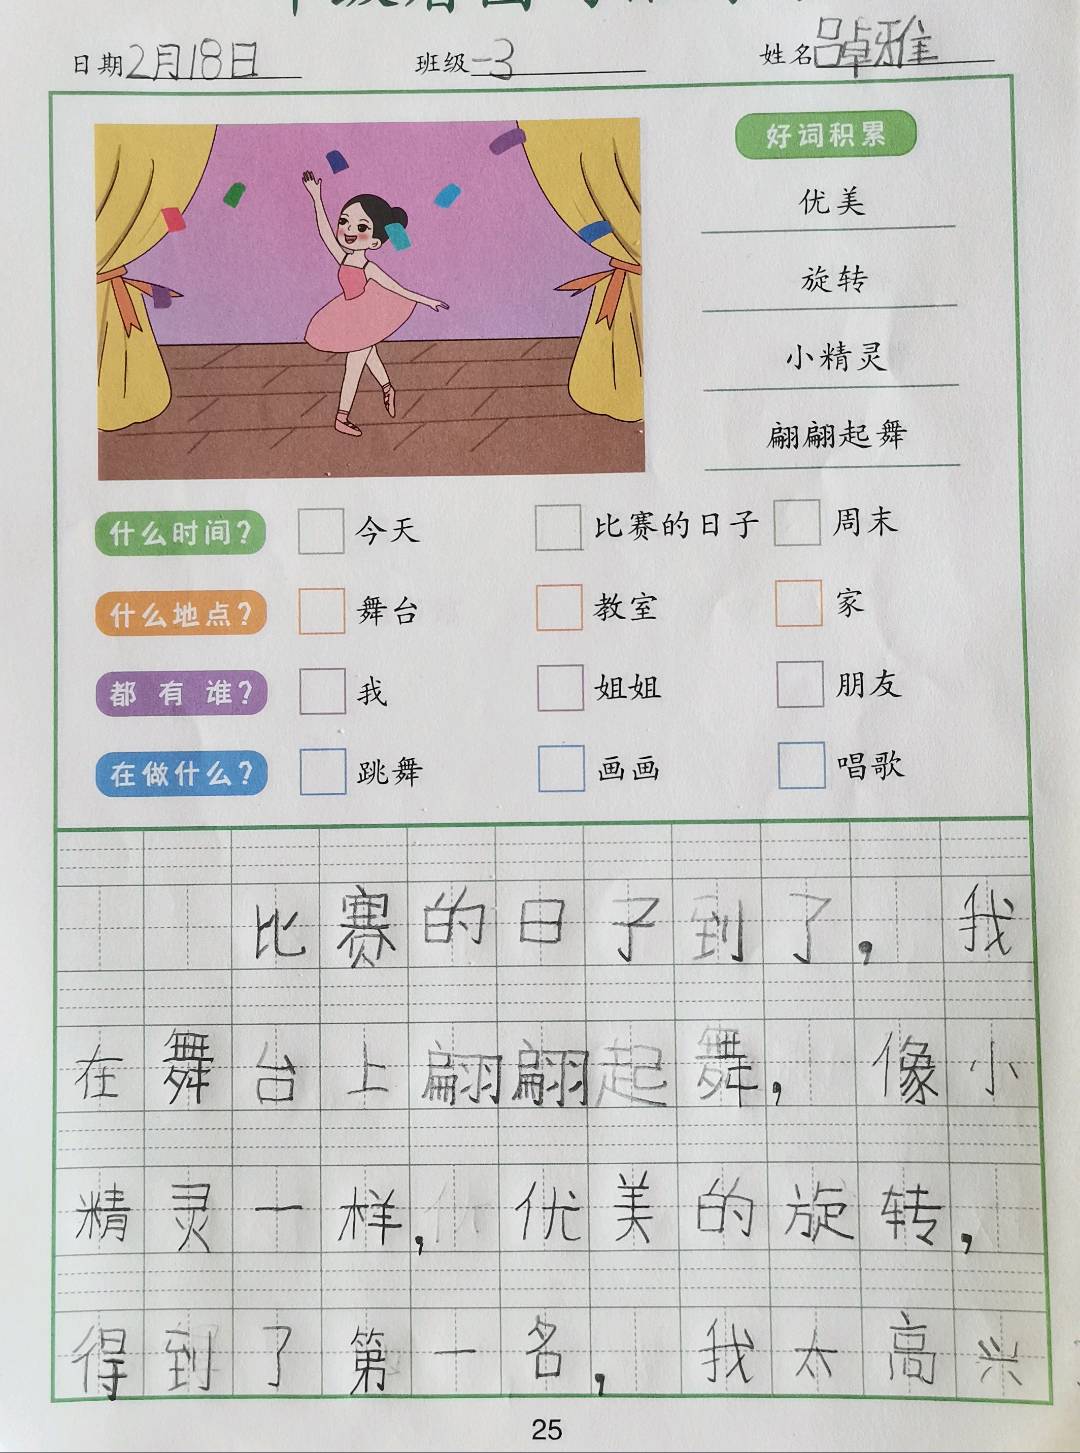 日期2月18日 班级一3 姓名吕卓雅
好词积累
优美
旋转
小精灵
翩翩起舞
什么时间? 今天 比赛的日子 周末
什么地点? 舞台 教室 家
都有谁? 我 姐姐 朋友
在做什么? 跳舞 画画 唱歌
比赛的日子到了，我
在舞台上翩翩起舞，像小
精灵一样，优美的旋转，
得到了第一名，我太高兴
25